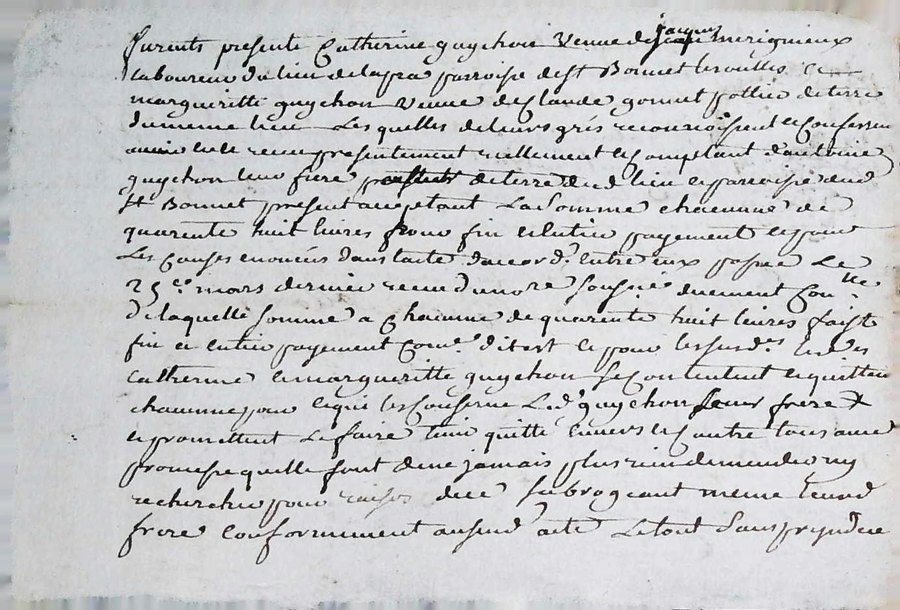 furents presente Catherine guychon Veuve de jacques merignieux
laboureur du lieu de lapra parroisse de St Bonnet les oulles et
margueritte guychon veuve de Claude gonnet pottier de terre
du meme lieu Lesquelles de leurs grés reconnoissent et Confessent
avoir eu et receu presentement reellement et Comptant d'antoine
guychon leur frere de terre dud lieu et parroisse dud
St Bonnet present acceptant La Somme chacunne de
quarente huit livres pour fin et entier payement et pour
Les Causes enoncées dans lacte daccord entre eux passé Le
25e mars dernier receu du nore sousné duement Conlle
De laquelle Somme a Chacunne de quarente huit livres faisst
fin et entier payement Come dit est et pour les susd es
Catherine et margueritte guychon se Contentent et quittent
chacunne pour ce qui les Conserne Led guychon leur frere
et promettent Le faire tenir quitte envers et Contre tous avec
promesse quelle font de ne jamais plus rien demender ny
rechercher pour raison dece subrogeant meme leurd
frere conformement ausud acte Le tout Sans prejudice